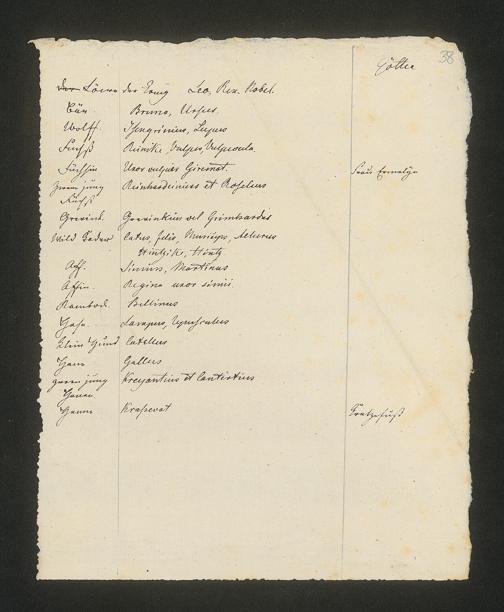 38
Götter
der Löwe der König Leo, Rex. Nobel.
Bär Bruno, Ursus.
Wolff. Isengrinus, Lupus
Fuchß Reinike, Vulpes, Vulpecula.
Füchsin Uxor vulpis Giremot. Frau Ermelyn
zween jung Reinhardinus et Roselius
Fuchß
Greving. Grevinkus vel Grimbardus
Wild Catus, felis, Murilegus, Aelurus
Hintzike, Hintz
Aff. Simius, Martinus
Affin. Regina uxor simii.
Rambock. Bellinus
Hase. Lampus,
klein Hund Catellus
Han Gallus
zween jung Kreyantius et Cantartius
Hanen
Henne Krassevot Kratzefuß